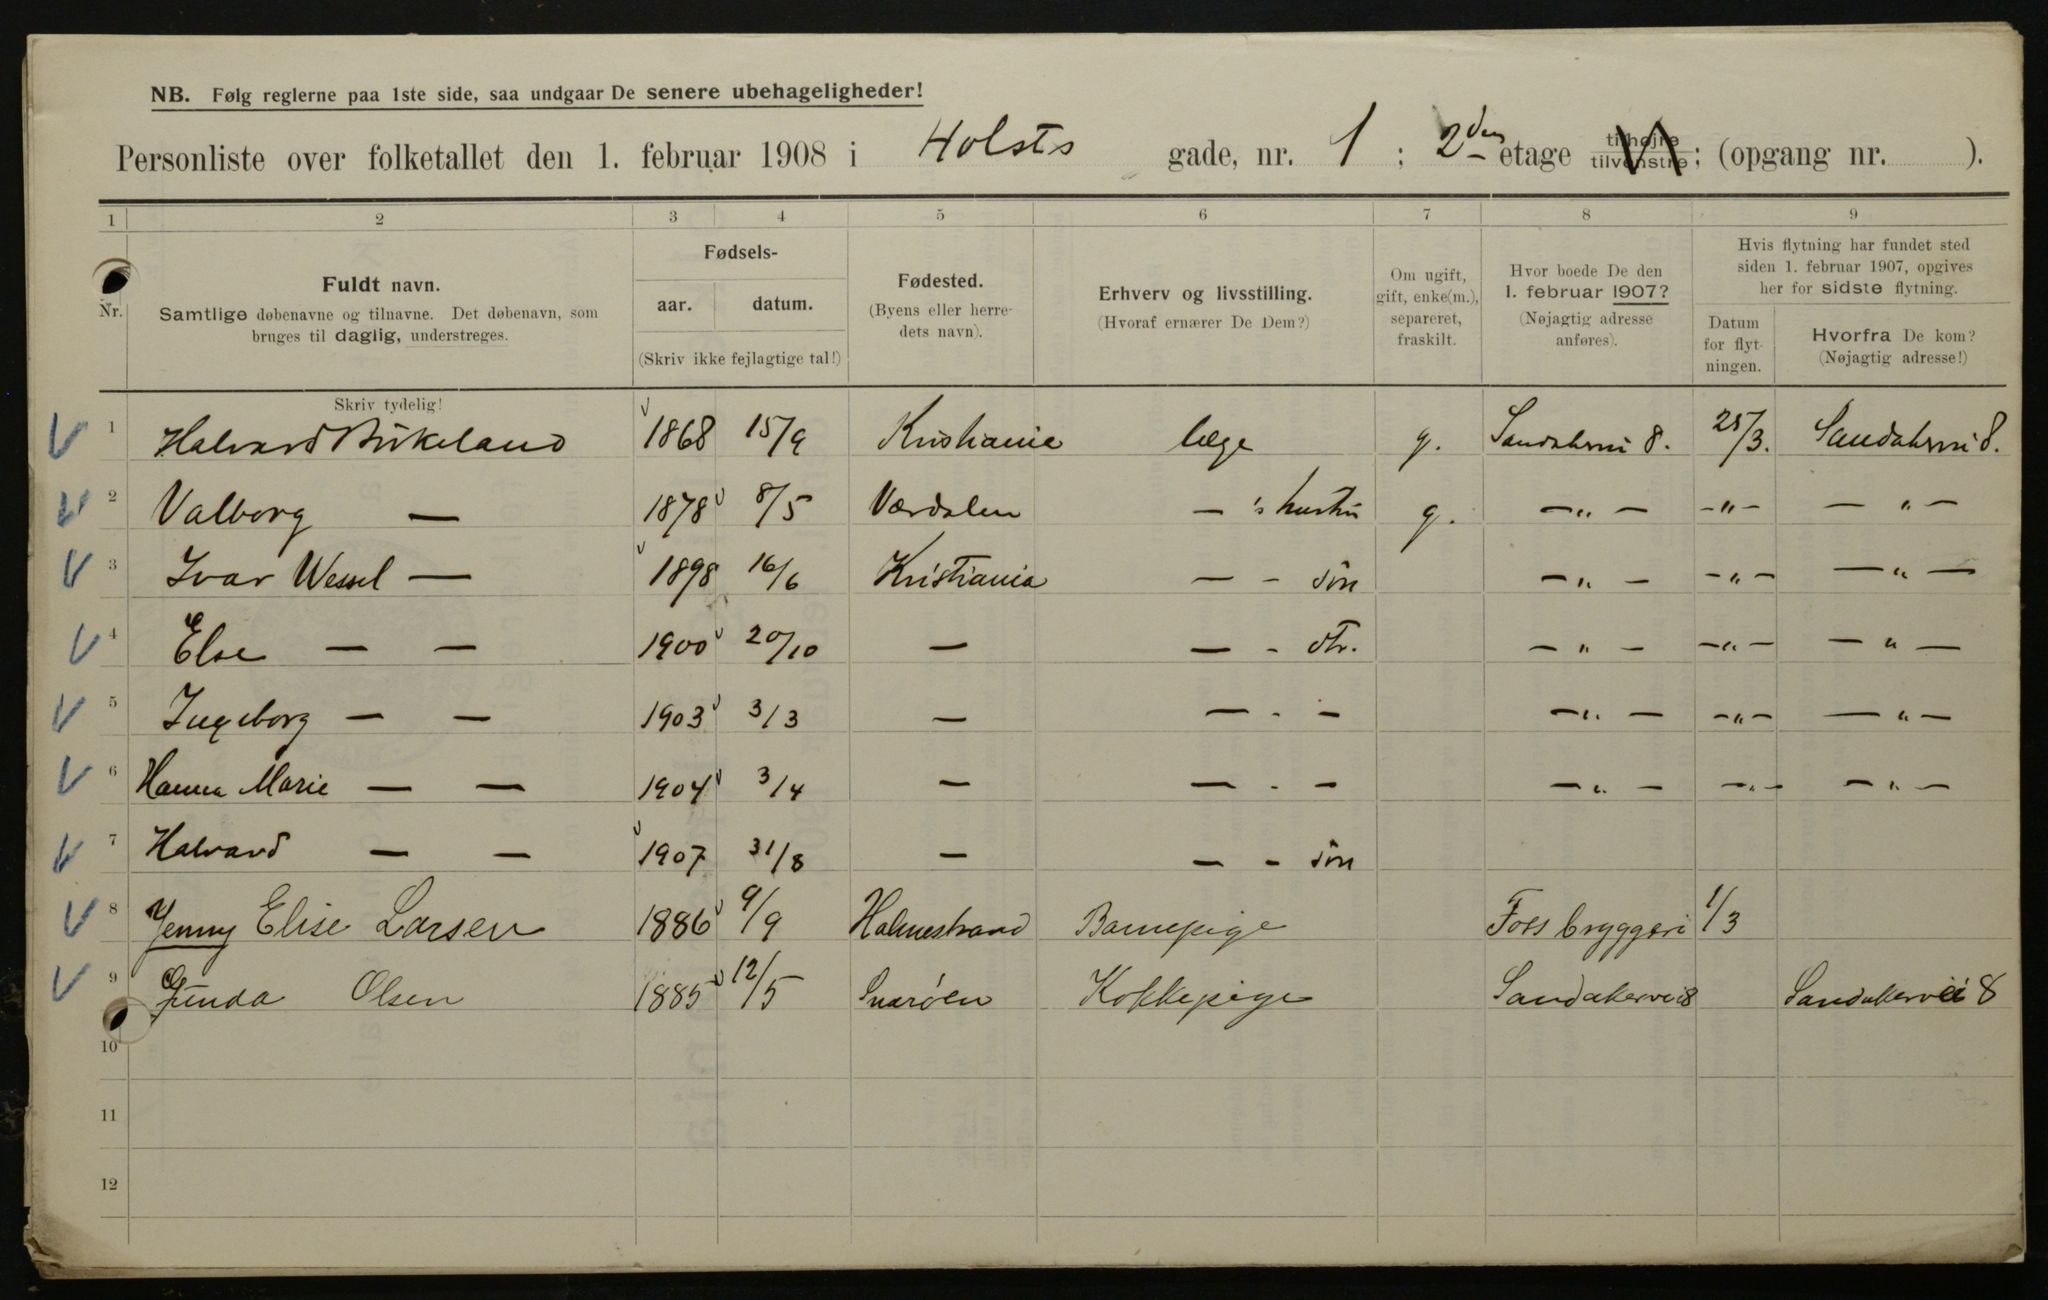 NB. Følg reglerne paa 1ste side, saa undgaar De senere ubehageligheder!
Personliste over folketallet den 1. februar 1908 i Holsts gade, nr. 1 ; 2den etage tilhøjre tilvenstre; (opgang nr. ).
1 2 3 4 5 6 7 8 9
Nr.
Fuldt navn.
Samtlige døbenavne og tilnavne. Det døbenavn, som
bruges til daglig, understreges.
Skriv tydelig!
Fødsels-
aar. datum.
(Skriv ikke fejlagtige tal!)
Fødested.
(Byens eller herre-
dets navn).
Erhverv og livsstilling.
(Hvoraf ernærer De Dem?)
Om ugift,
gift, enke(m.),
separeret,
fraskilt.
Hvor boede De den
1. februar 1907?
(Nøjagtig adresse
anføres).
Hvis flytning har fundet sted
siden 1. februar 1907, opgives
her for sidste flytning.
Datum
for flyt-
ningen.
Hvorfra De kom?
(Nøjagtig adresse!)
1 Halvard Birkeland 1868 15/9 Kristiania læge g. Sandakervei 8. 25/3. Sandakervei 8.
2 Valborg — 1878 8/5 Værdalen — 's hustru g. — „ — — „ — — „ —
3 Ivar Wessel — 1898 16/6 Kristiania — - søn — „ — — „ — — „ —
4 Else — — 1900 20/10 — — - dtr. — „ — — „ — — „ —
5 Ingeborg — — 1903 3/3 — — - — — „ — — „ — — „ —
6 Hanna Marie — — 1904 3/4 — — - — — „ — — „ — — „ —
7 Halvard — — 1907 31/8 — — - søn
8 Jenny Elise Larsen 1886 9/9 Holmestrand Barnepige Foss bryggeri 1/3
9 Gunda Olsen 1885 12/5 Snarøen Kokkepige Sandakervei 8 Sandakervei 8
10
11
12